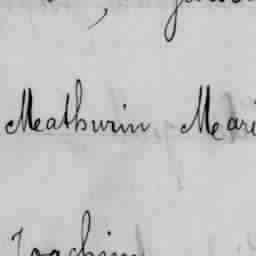 Mathurin Mari
Joachim